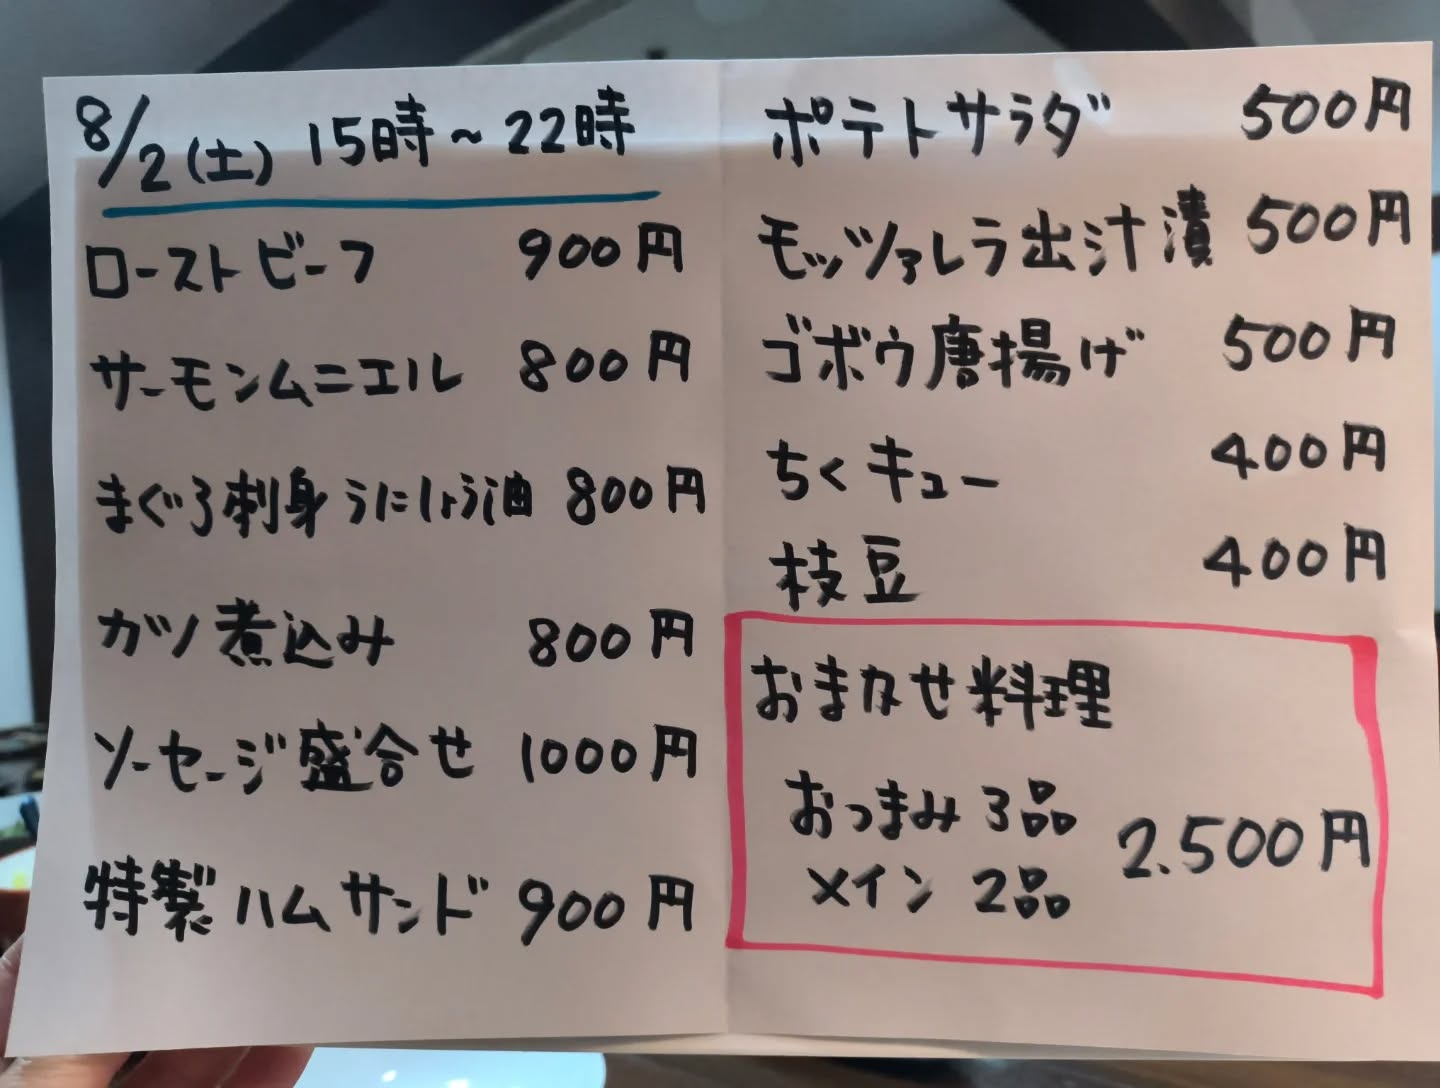 8/2(土) 15時～22時
ローストビーフ 900円
サーモンムニエル 800円
まぐろ刺身うにしょう油 800円
ガツ煮込み 800円
ソーセージ盛合せ 1000円
特製ハムサンド 900円
ポテトサラダ 500円
モッツァレラ出汁漬 500円
ゴボウ唐揚げ 500円
ちくキュー 400円
枝豆 400円
おまかせ料理
おつまみ3品
メイン2品
2.500円